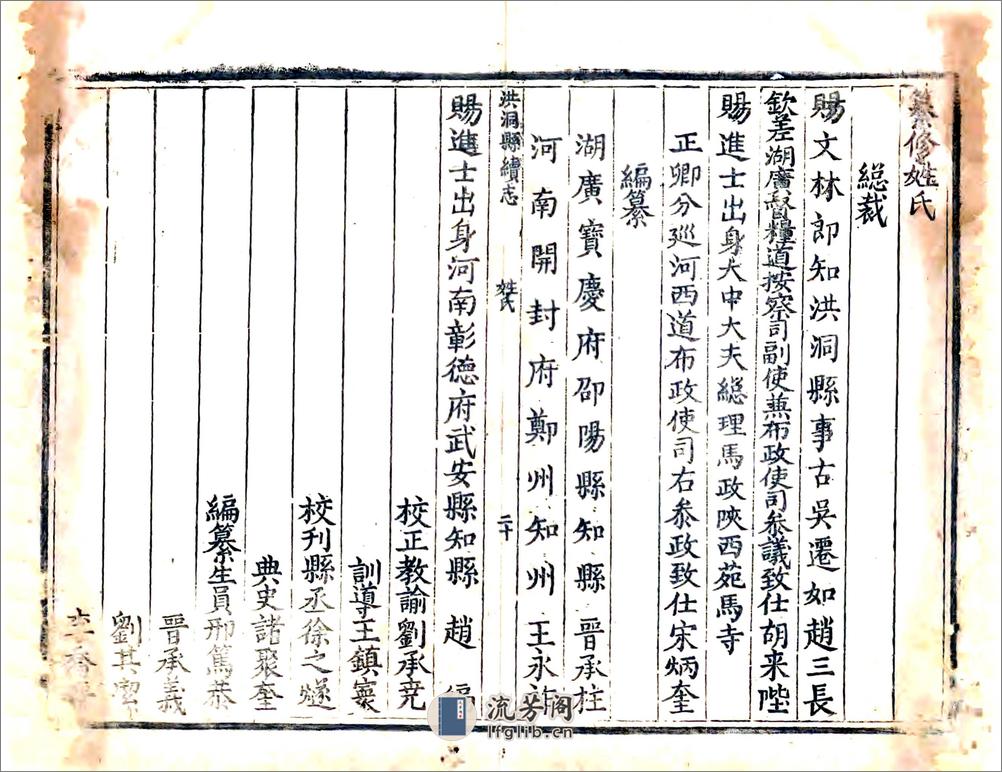 纂修姓氏
總裁
賜文林郎知洪洞縣事古吳遷如趙三長
欽差湖廣督糧道按察司副使兼布政使司叅議致仕胡来陛
賜進士出身大中大夫總理馬政陝西苑馬寺
正卿分廵河西道布政使司右叅政致仕宋炳奎
編纂
湖廣寶慶府邵陽縣知縣晉承柱
河南開封府鄭州知州王永祚
洪洞縣續志 姓氏 二十
賜進士出身河南彰德府武安縣知縣趙
校正教諭劉承堯
訓導王鎮寰
校刊縣丞徐之燧
典史諸聚奎
編纂生員邢篤恭
晉承義
劉其潔
李
流芳阁
lfglib.cn